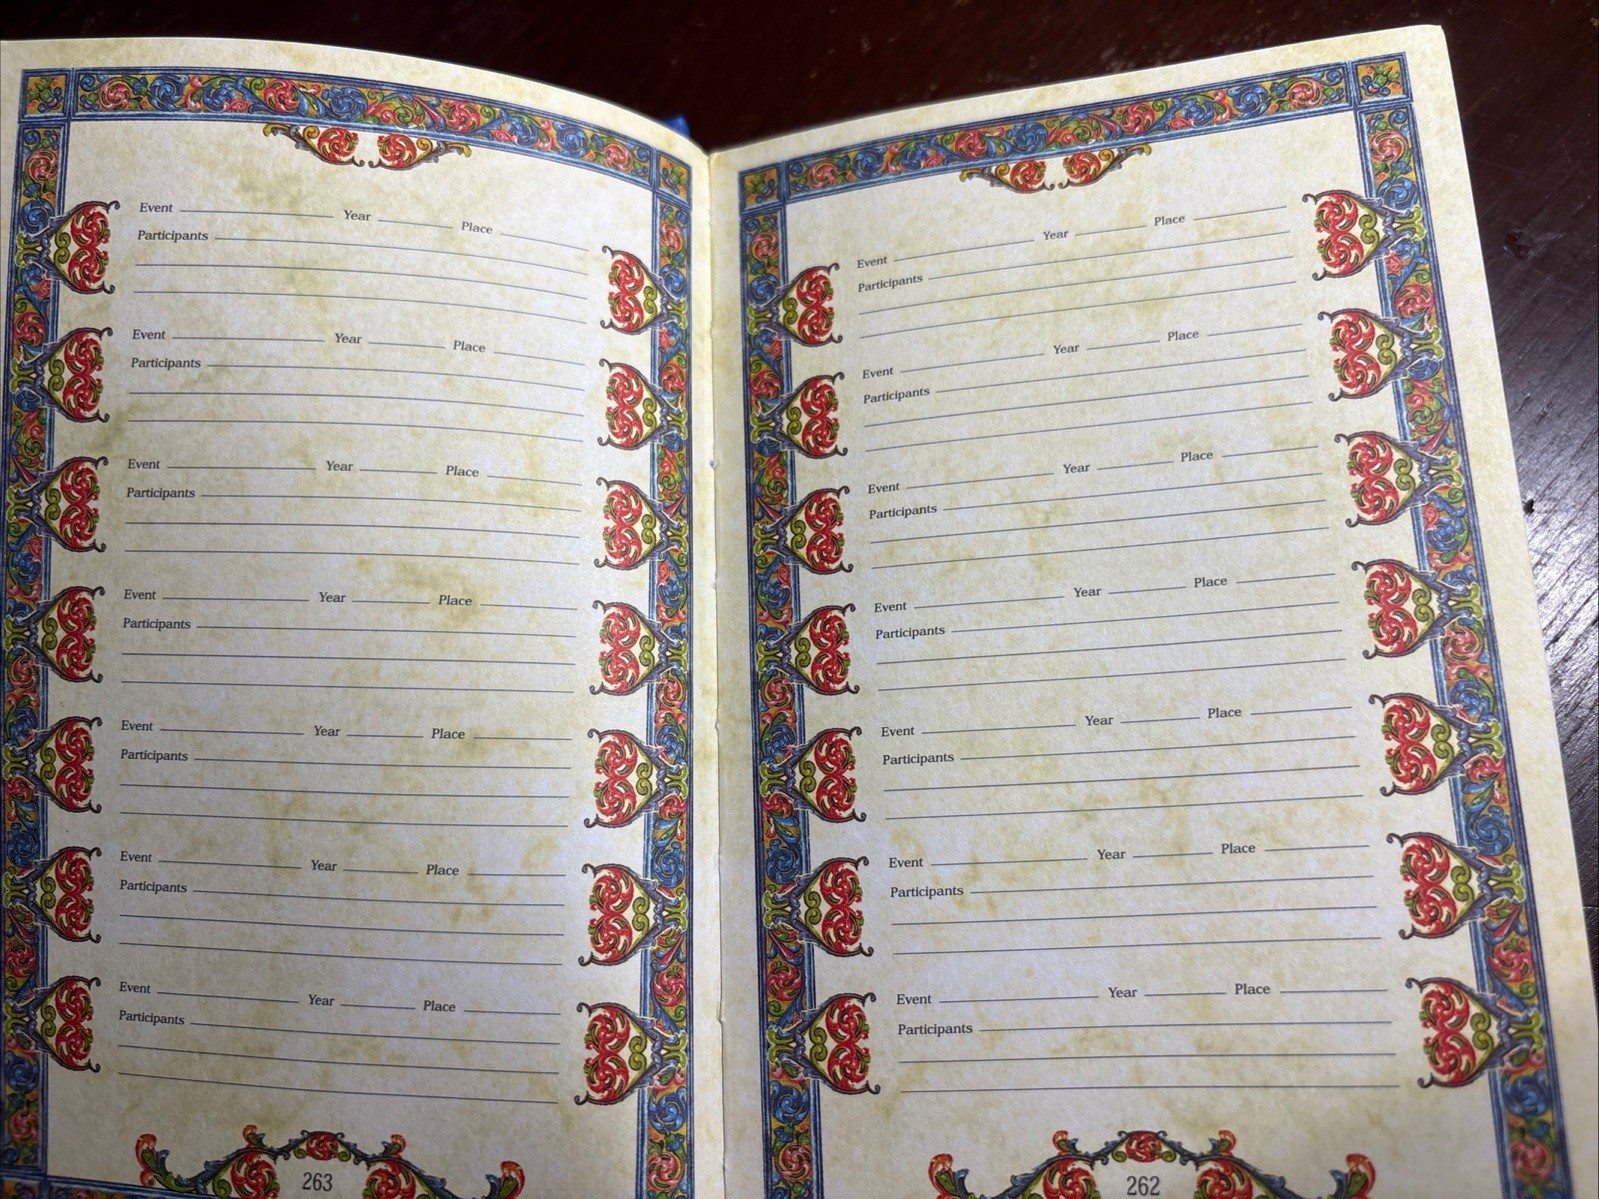 Event Year Place
Participants
Event Year Place
Participants
Event Year Place
Participants
Event Year Place
Participants
Event Year Place
Participants
Event Year Place
Participants
Event Year Place
Participants
263
Event Year Place
Participants
Event Year Place
Participants
Event Year Place
Participants
Event Year Place
Participants
Event Year Place
Participants
Event Year Place
Participants
Event Year Place
Participants
262